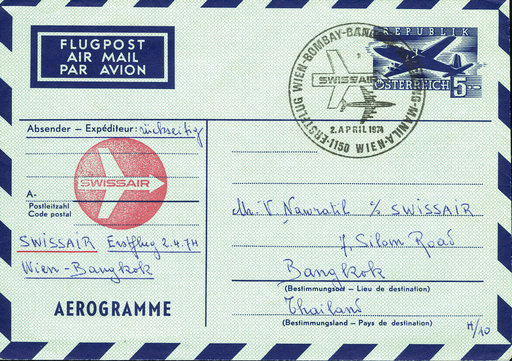 FLUGPOST
AIR MAIL
PAR AVION
REPUBLIK
ÖSTERREICH 5
ERSTFLUG WIEN-BOMBAY-BANGKOK
MANILA
SWISSAIR
2. APRIL 1974
1150 WIEN
Absender – Expéditeur: rückseitig
SWISSAIR
A-
Postleitzahl
Code postal
SWISSAIR Erstflug 2.4.74
Wien-Bangkok
AEROGRAMME
Mr. V. Nawratil % SWISSAIR
7, Silom Road
Bangkok
(Bestimmungsort – Lieu de destination)
Thailand
(Bestimmungsland – Pays de destination)
H/10